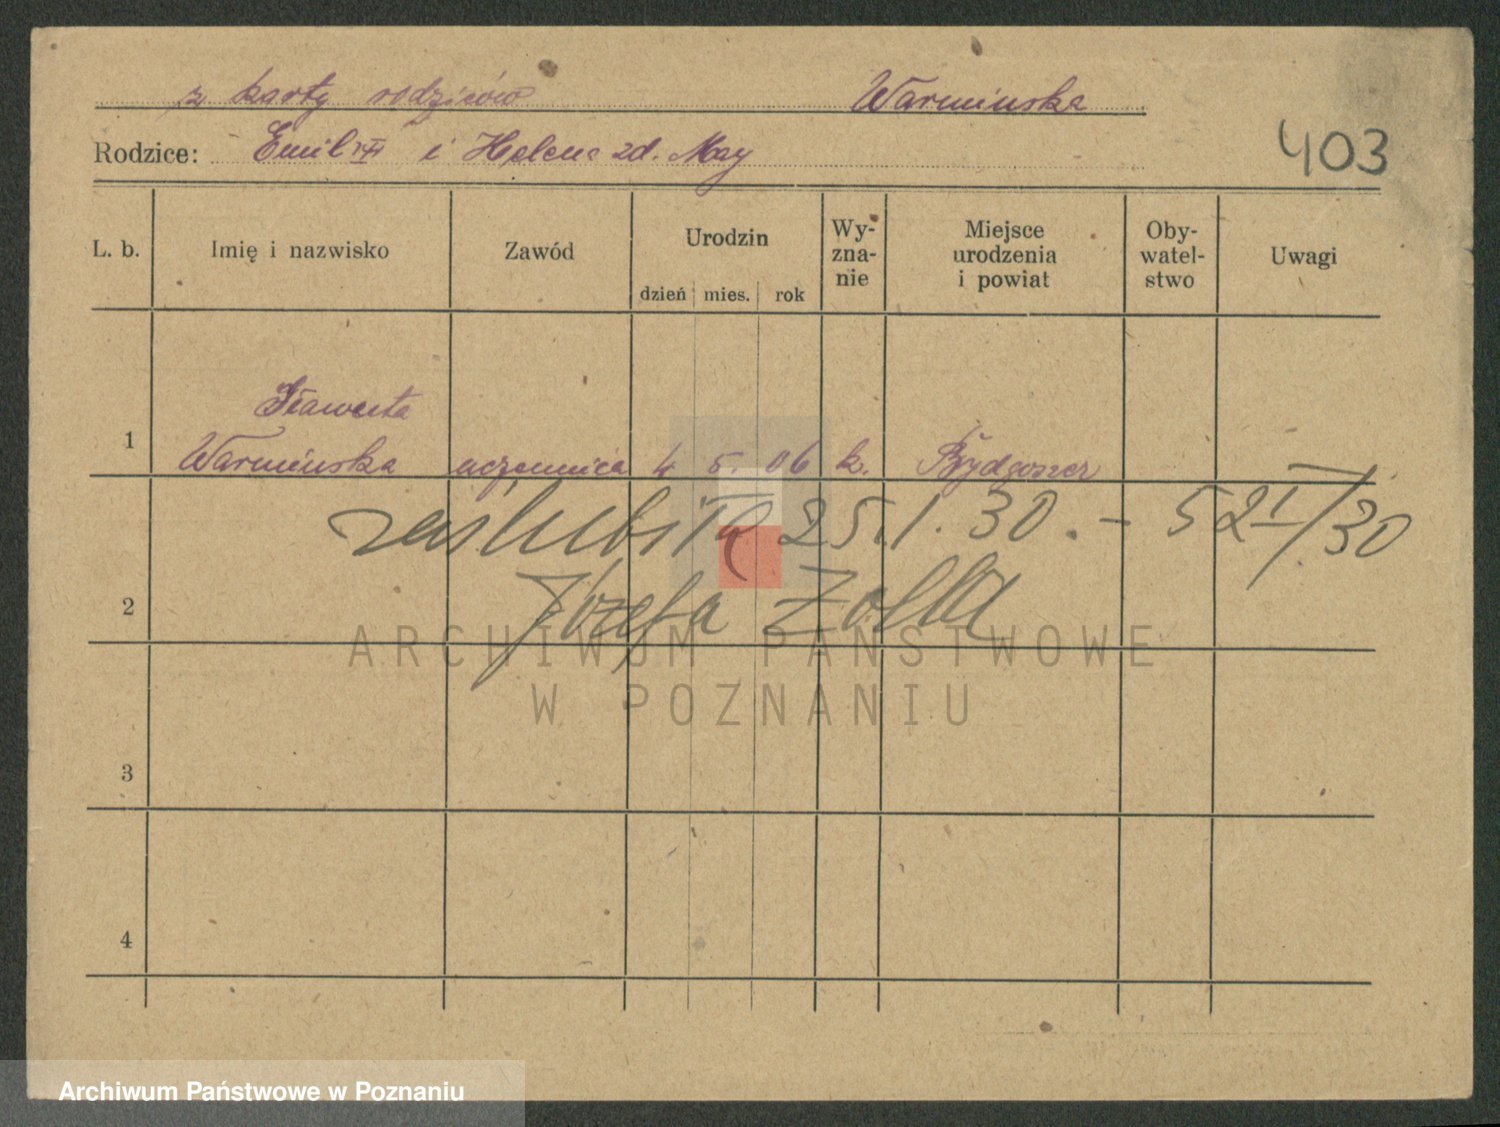 z karty rodziców Warmińska
Rodzice: Emil i Helena zd. May
403
L. b. Imię i nazwisko Zawód Urodzin dzień mies. rok Wy-zna-nie Miejsce urodzenia i powiat Oby-watel-stwo Uwagi
1 Sławesta
Warmińska uczennica 4 5. 06 k. Bydgoszcz
zaślubiła 25.1.30. – 52 I/30
2 Józefa
ARCHIWUM PAŃSTWOWE
W POZNANIU
3
4
Archiwum Państwowe w Poznaniu